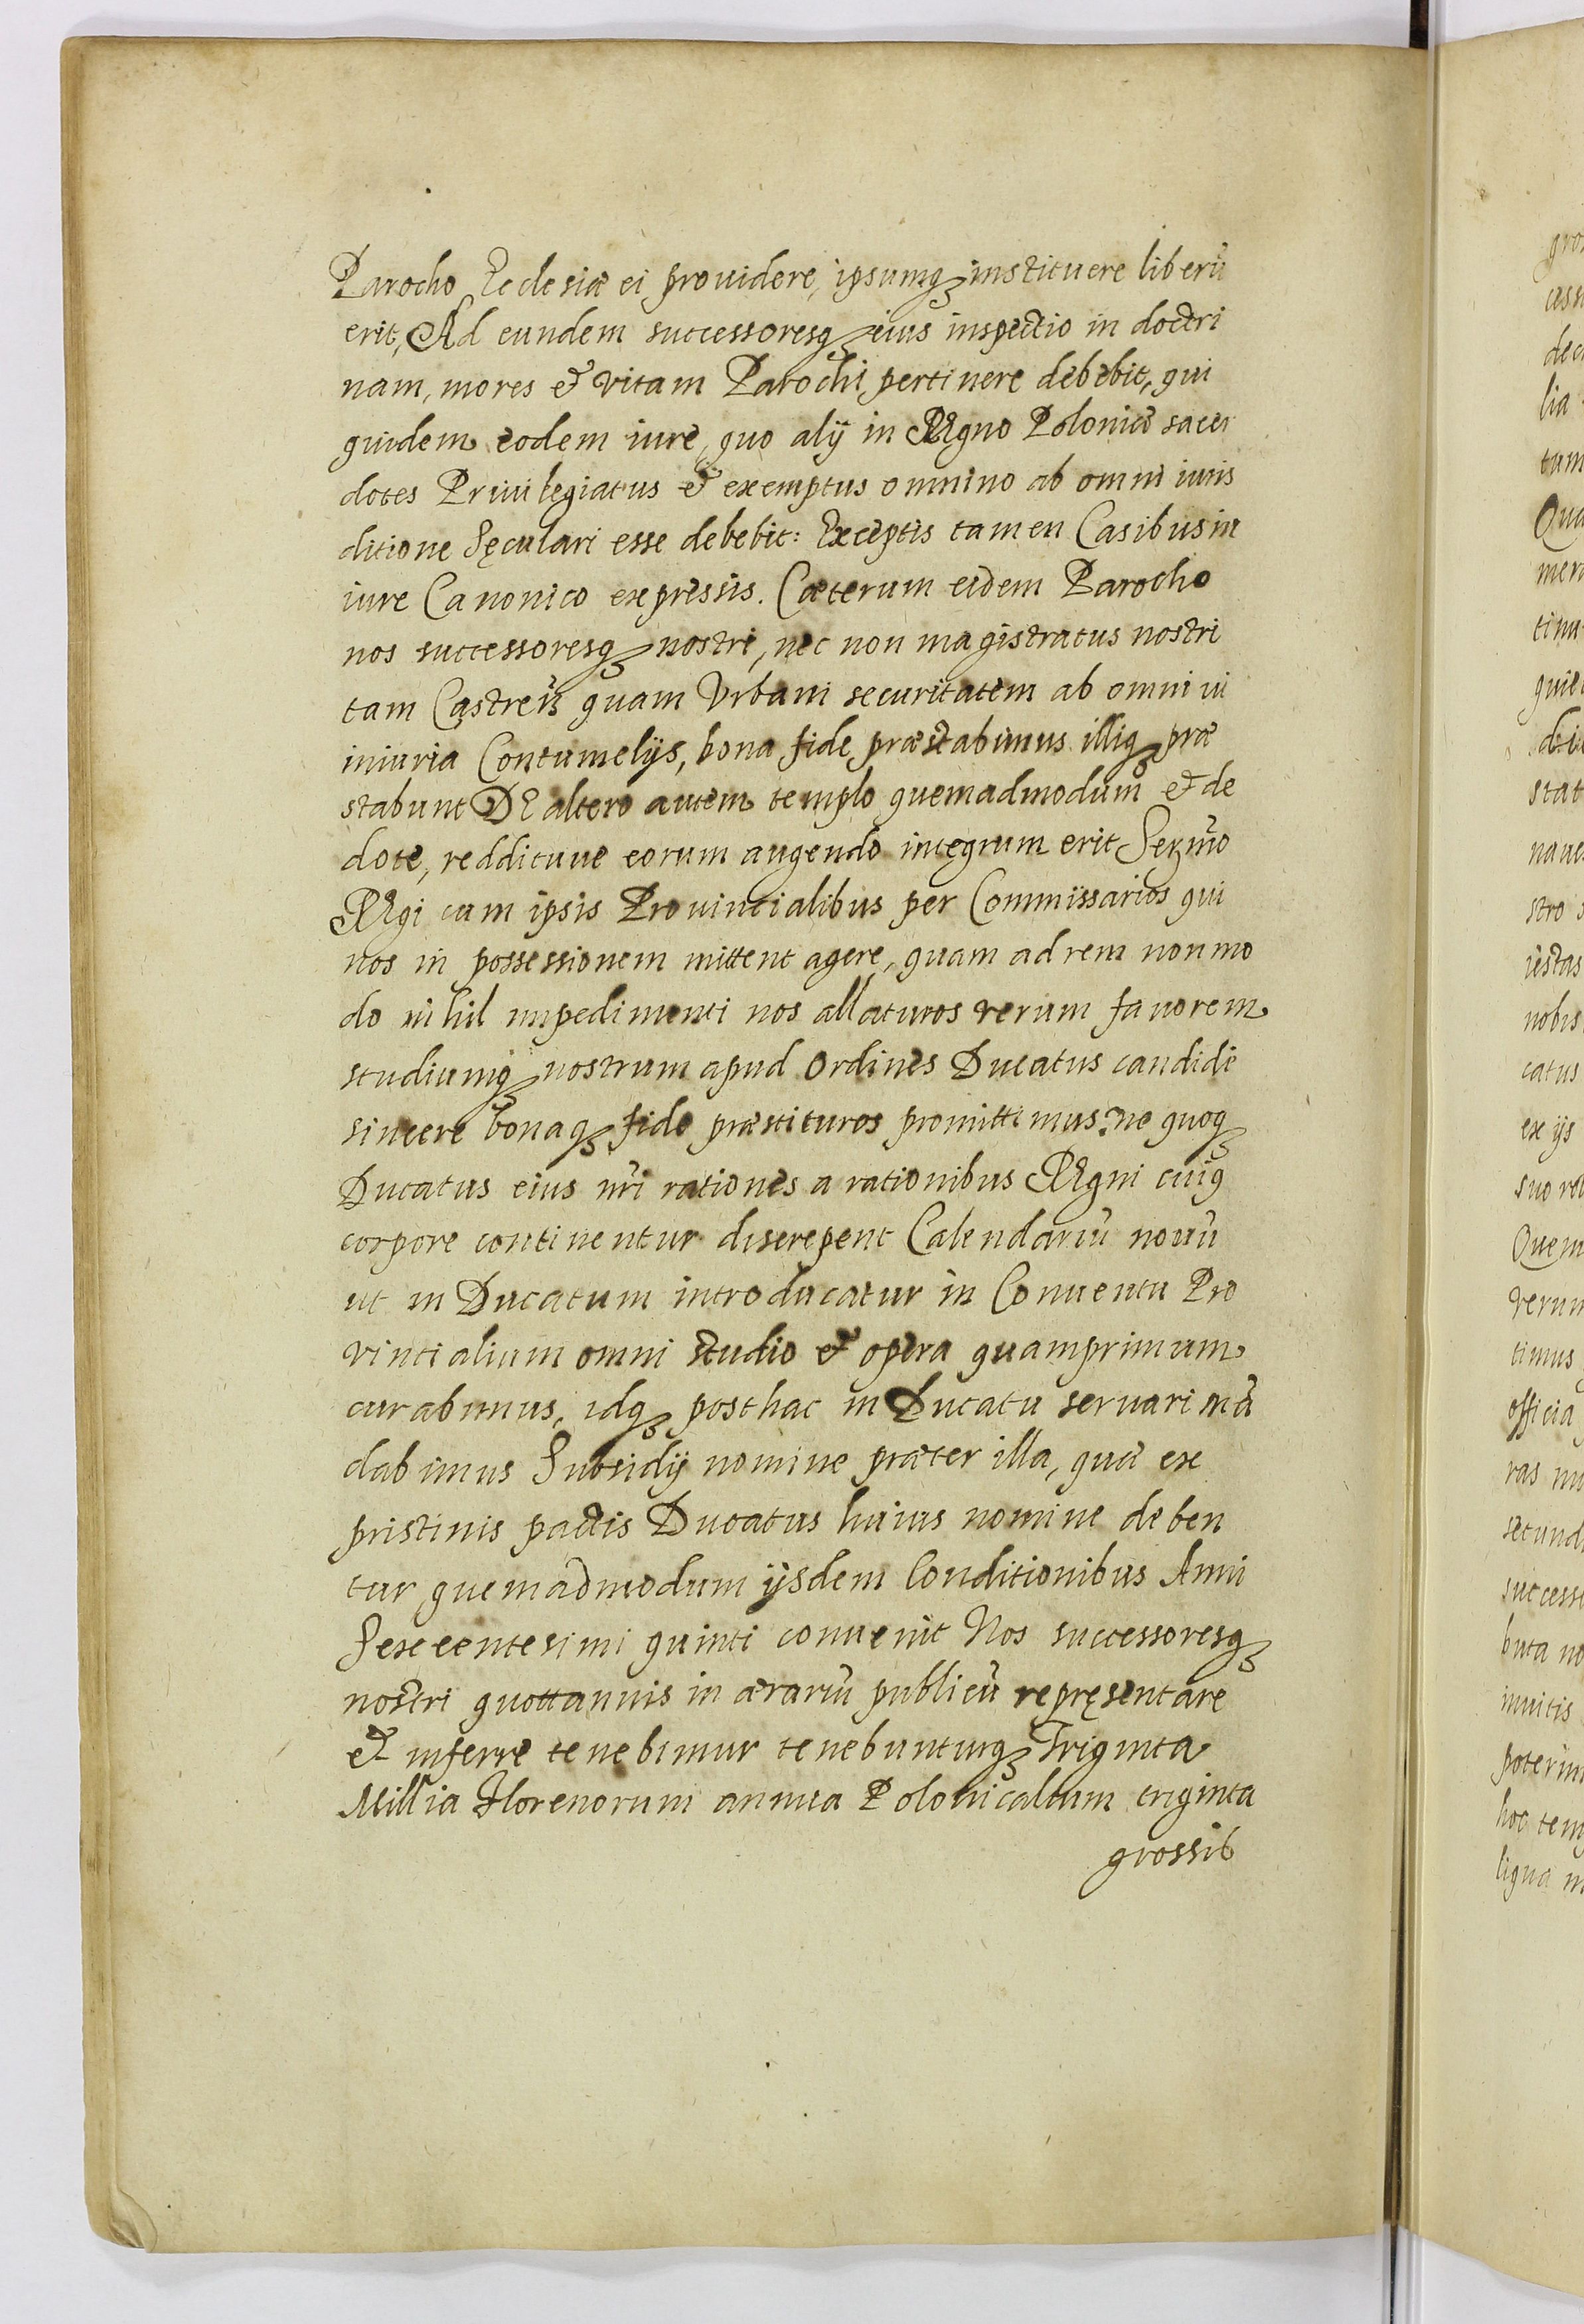 Parocho Ecclesiæ ei prouidere, ipsumq₃ instituere liberũ
erit, Ad eundem successoresq₃ eius inspectio in doctri
nam, mores & vitam Parochi pertinere debebit, qui
quidem eodem iure, quo alÿ in REgno Poloniæ sacer
dotes Priuilegiatus & exemptus omnino ab omni iuris
ditione Sęculari esse debebit: Exceptis tamen Casibus in
iure Canonico expressis. Cæterum eidem Parocho
nos successoresq₃ nostri, nec non magistratus nostri
tam Castreñ quam Vrbani securitatem ab omni ui
iniuria Contumelÿs, bona fide præstabimus illiq₃ præ
stabunt DE altero autem templo quemadmodum & de
dote, reddituue eorum augendo integrum erit Serm̃o
REgi cum ipsis Prouincialibus per Commissarios qui
nos in possessionem mittent agere, quam ad rem non mo
do nihil impedimenti nos allaturos verum fauorem
studiumq₃ nostrum apud Ordines Ducatus candide
sincere bonaq₃ fide præstituros promittimus: ne quoq₃
Ducatus eius nr̃i rationes a rationibus REgni cuiq
corpore continentur discrepent Calendariũ nouũ
ut in Ducatum introducatur in Conuentu Pro
vincialium omni studio & opera quamprimum
curabimus, idq₃ posthac in Ducatu seruari mã
dabimus Subsidÿ nomine præter illa, quæ ex
pristinis pactis Ducatus huius nomine deben
tur quemadmodum ÿsdem Conditionibus Anni
Sexcentesimi quinti conuenit Nos successoresq₃
nostri quottannis in ærariũ publicũ repręsentare
& inferre tenebimur tenebunturq₃ Triginta
Millia Florenorum annua Polonicalium triginta
grossis
gro
cass
dec
lia
tum
Qua
men
tinu
quie
dic
stat
naues
stro s
iestas
nobis
catus
ex ijs
suo re
Quem
verum
timus
officia
ras nu
secund
success
buta no
inuitis
poterim
hoc tem
liqua n